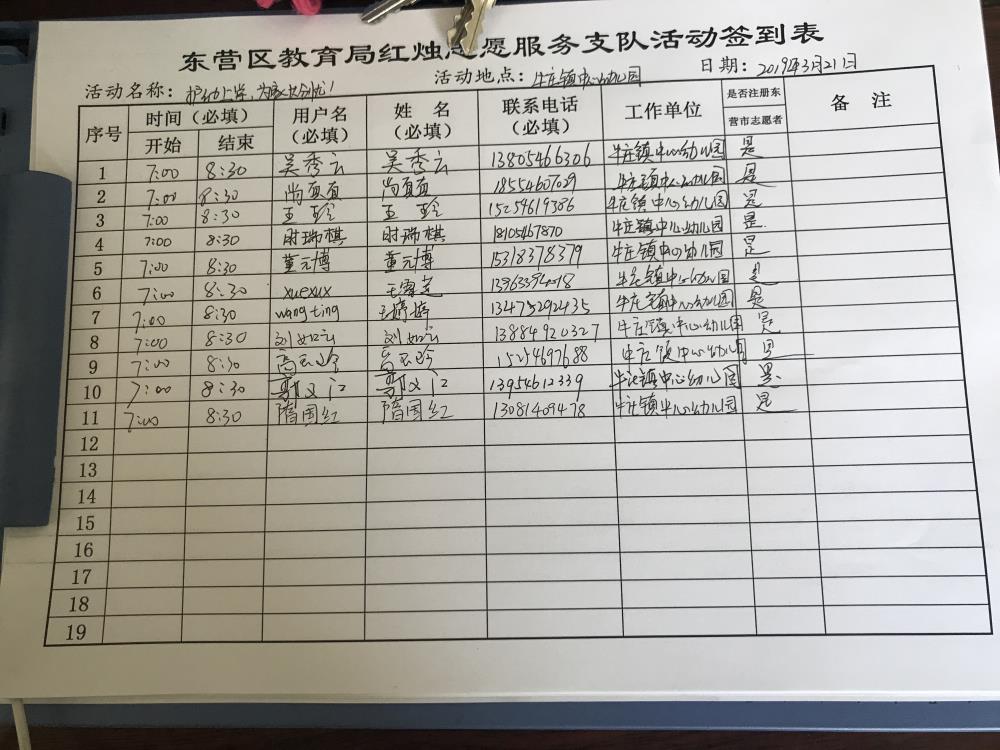 东营区教育局红烛志愿服务支队活动签到表
活动名称： 护幼上学，为 活动地点：牛庄镇中心幼儿园 日期：2019年3月21日
序号 时间（必填） 开始 结束 用户名（必填） 姓 名（必填） 联系电话（必填） 工作单位 是否注册东营市志愿者 备 注
1 7:00 8:30 吴秀云 吴秀云 13805466306 牛庄镇中心幼儿园 是
2 7:00 8:30 尚 尚 18554607029 牛庄镇中心幼儿园 是
3 7:00 8:30 王珍 王珍 15254619386 牛庄镇中心幼儿园 是
4 7:00 8:30 时瑞棋 时瑞棋 18105467870 牛庄镇中心幼儿园 是
5 7:00 8:30 董元博 董元博 15318378379 牛庄镇中心幼儿园 是
6 7:00 8:30 xuexux 牛庄镇中心幼儿园 是
7 7:00 8:30 wangting 王婷婷 13475292435 牛庄镇中心幼儿园 是
8 7:00 8:30 刘如云 刘如云 13884920327 牛庄镇中心幼儿园 是
9 7:00 8:30 15254697688 牛庄镇中心幼儿园 是
10 7:00 8:30 郭文江 郭文江 13954612339 牛庄镇中心幼儿园 是
11 7:00 8:30 隋国红 隋国红 13081409478 牛庄镇中心幼儿园 是
12
13
14
15
16
17
18
19